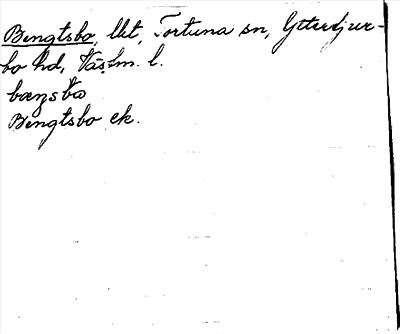 Bengtsbo, lht, Tortuna sn, Yttertjur-
bo hd, Västm. l.
bæŋsbω
Bengtsbo ek.